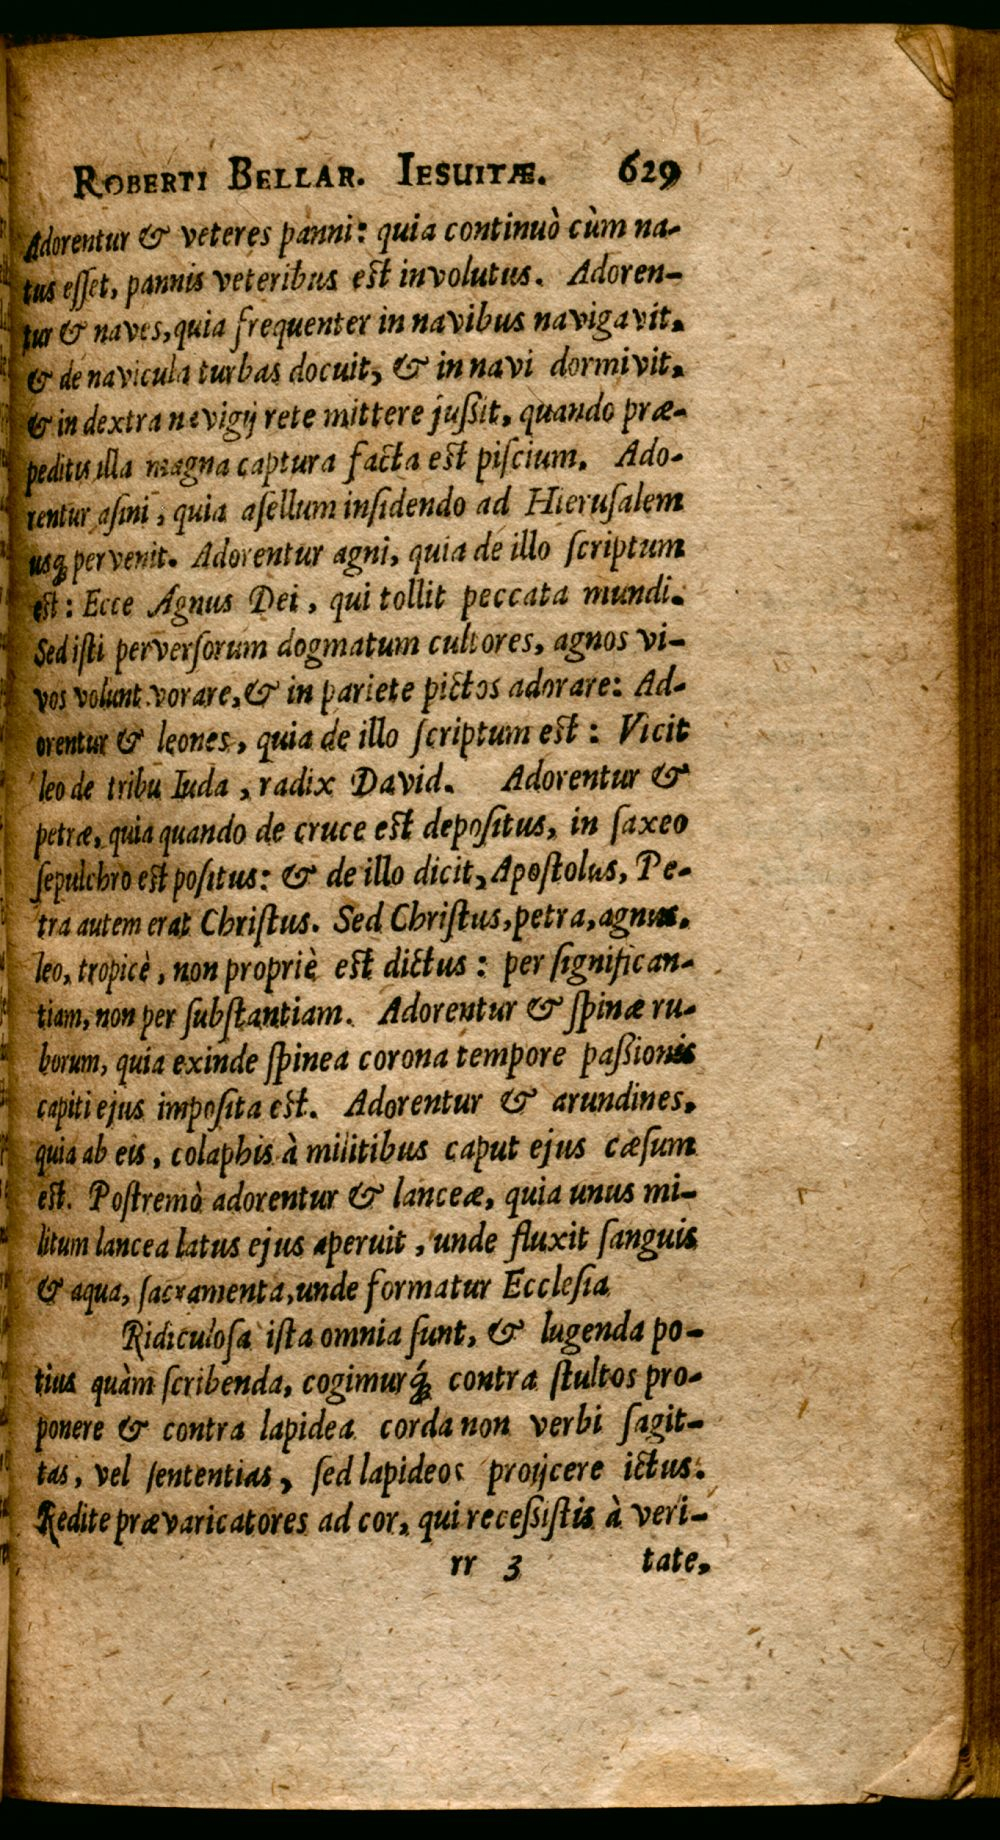 ROBERTI BELLAR. IESUITÆ. 629
Adorentur & veteres panni: quia continuò cùm na-
tus eſſet, pannis veteribus est involutus. Adoren-
tur & naves, quia frequenter in navibus navigavit,
& de navicula turbas docuit, & in navi dormivit,
& in dextra navigij rete mittere juſſit, quando præ-
peditus illa magna captura facta est piſcium. Ado-
rentur aſini, quia aſellum inſidendo ad Hieruſalem
uſq́ pervenit. Adorentur agni, quia de illo ſcriptum
est: Ecce Agnus Dei, qui tollit peccata mundi.
Sed iſti perverſorum dogmatum cultores, agnos vi-
vos volunt vorare, & in pariete pictos adorare: Ad-
orentur & leones, quia de illo ſcriptum est: Vicit
leo de tribu Iuda, radix David. Adorentur &
petræ, quia quando de cruce est depoſitus, in ſaxeo
ſepulchro est poſitus: & de illo dicit, Apoſtolus, Pe-
tra autem erat Chriſtus. Sed Chriſtus, petra, agnus,
leo, tropicè, non propriè est dictus: per ſignifican-
tiam, non per ſubſtantiam. Adorentur & ſpinæ ru-
borum, quia exinde ſpinea corona tempore paſſionis
capiti ejus impoſita est. Adorentur & arundines,
quia ab eis, colaphis à militibus caput ejus cæſum
est. Poſtremò adorentur & lanceæ, quia unus mi-
litum lancea latus ejus aperuit, unde fluxit ſanguis
& aqua, ſacramenta, unde formatur Eccleſia
Ridiculoſa iſta omnia ſunt, & lugenda po-
tius quàm ſcribenda, cogimurq́ contra ſtultos pro-
ponere & contra lapidea corda non verbi ſagit-
tas, vel ſententias, ſed lapideos proijcere ictus.
Redite prævaricatores ad cor, qui receſſiſtis à veri-
rr 3 tate,